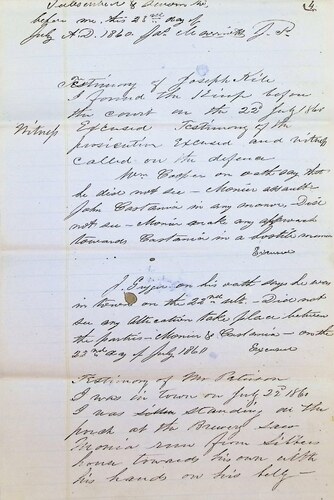 Subscribed & Sworn to
before me, this 23rd day of
July A.D. 1860. J. P.
4
Testimony of Joseph Kile
I found the before
the court on the 22d July 1860
Witness Excused Testimony of the
prosecution Excused and witness
called on the defence
Wm. Casper on oath say that
he did not see - Monia assault
John Castania in any maner. Did
not see - Monia make any approach
towards Castania in a hostile manner
Excused
J. on his oath says he was
in town on the 22nd ult. - Did not
see any altercation take place between
the parties - Monia & Castania - on the
22nd day of July 1860 Excused
Testimony of Mr Peterson
I was in town on July 22d 1860
I was standing on the
porch at the Brewery Saw
Monia run from
house towards his own with
his hands on his belly